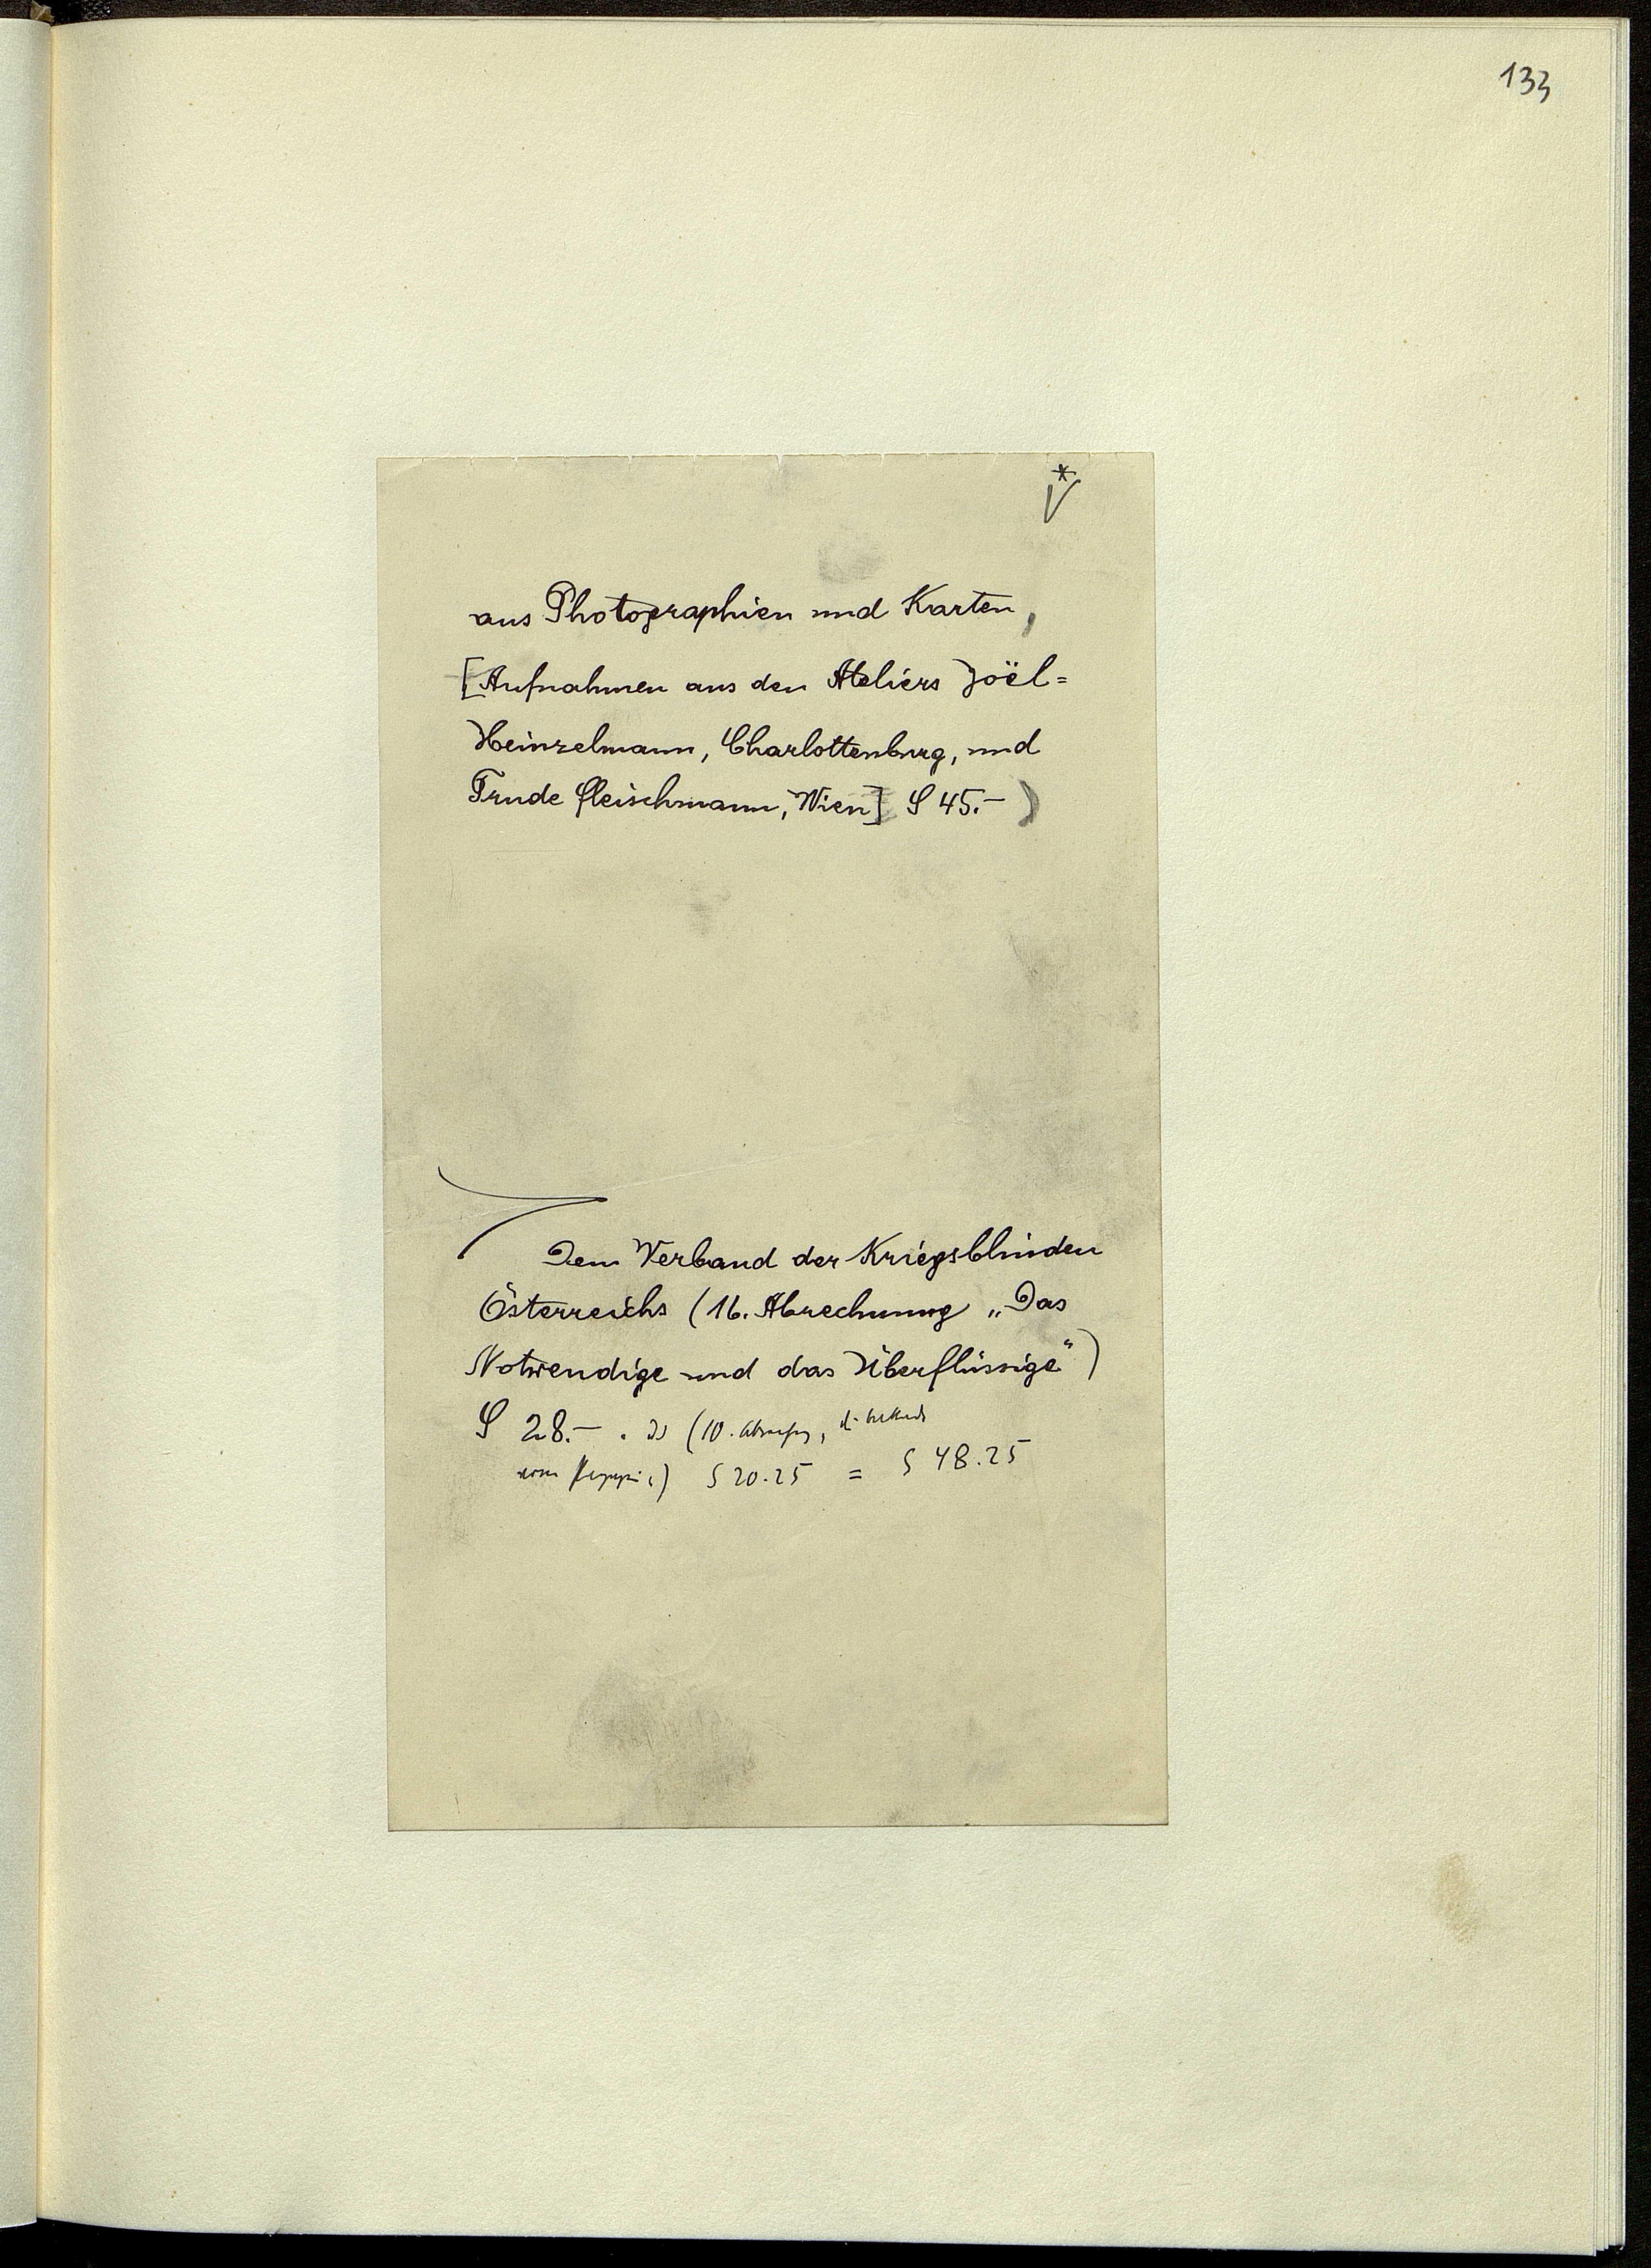 133
*
aus Photographien und Karten,
[Aufnahmen aus den Ateliers Joël=
Heinzelmann, Charlottenburg, und
Trude Fleischmann, Wien] S 45.– )
Dem Verband der Kriegsblinden
Österreichs (16. Abrechnung „Das
Notwendige und das Überflüssige“)
S 28.– . (10.
vom S 20.25 = S 48.25